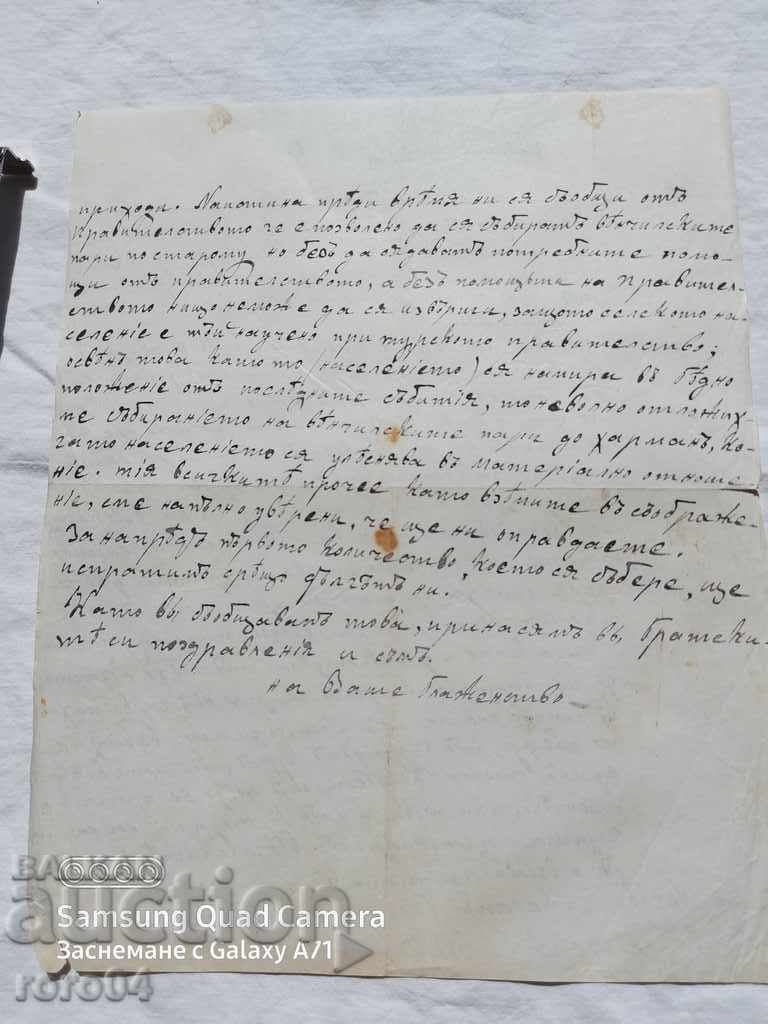 приходи. Наистина прѣди врѣмя ни ся съобщи отъ
Правителството че е позволено да ся събиратъ вѣнчилските
пари по старому но безъ да ся даватъ потребните помо-
щи отъ правителството, а безъ помощьта на Правител-
ството нищо неможе да ся извърши, защото селското на-
селение е тъй научено при турското правителство;
освѣнъ това като то (населението) ся намира въ бѣдно
положение отъ послѣдните събития, то неволно отложих-
ме събиранието на вѣнчилските пари до харманъ, ко-
гато населението ся улѣснява въ материално отноше-
ние. тия всичкитѣ прочее като взѣмите въ съображе-
ние, сме напълно увѣрени, че ще ни оправдаете.
Занапрѣдъ първото количество което ся събере, ще
испратимъ срѣщо дългътъ ни.
Като вы съобщавамъ това, принасямъ вы братски-
тѣ си поздравления и съмъ.
на Ваше Блаженство
БАЛКАН
auction
Samsung Quad Camera
Заснемане с Galaxy A71
roro04